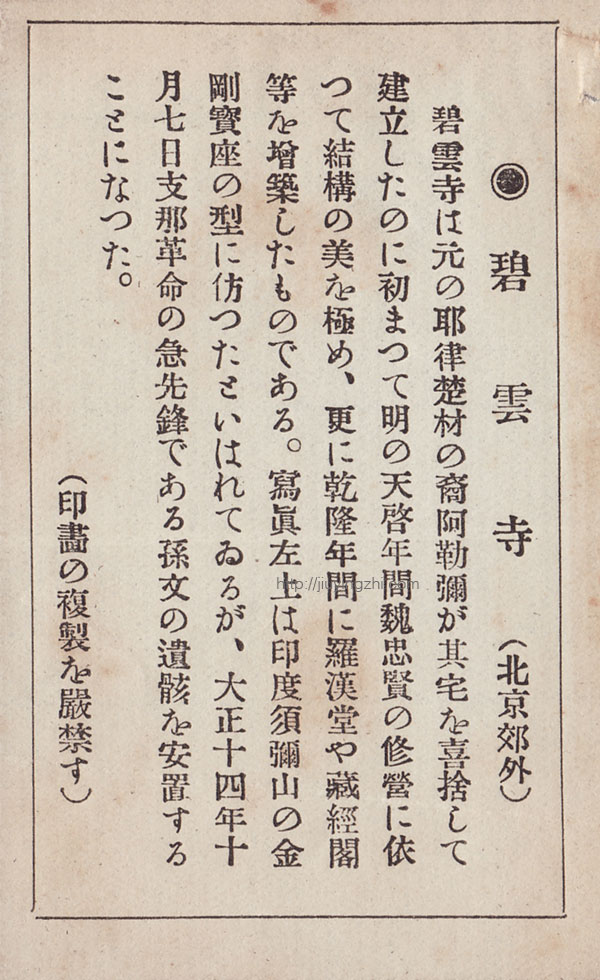 ◉碧雲寺（北京郊外）
碧雲寺は元の耶律楚材の裔阿勒彌が其宅を喜捨して
建立したのに初まつて明の天啓年間魏忠賢の修營に依
つて結構の美を極め、更に乾隆年間に羅漢堂や藏經閣
等を增築したものである。寫眞左上は印度須彌山の金
剛寶座の型に仿つたといはれてゐるが、大正十四年十
月七日支那革命の急先鋒である孫文の遺骸を安置する
ことになつた。
（印畵の複製を嚴禁す）